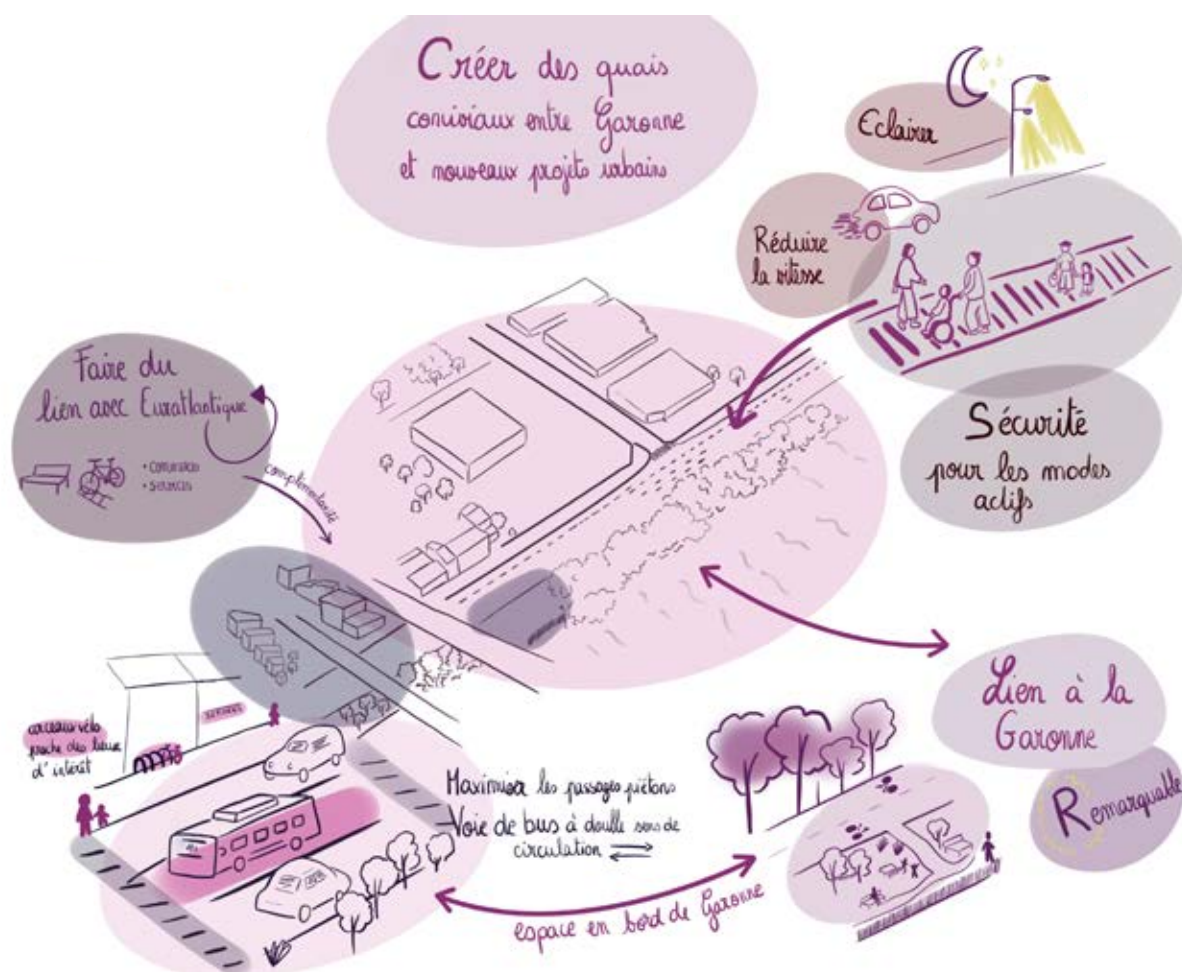 Créer des quais
conviviaux entre Garonne
et nouveaux projets urbains
Eclairer
Réduire
la vitesse
Sécurité
pour les modes
actifs
Faire du
lien avec Euratlantique
• commerces
• services
complémentarité
Lien à la
Garonne
Remarquable
arceaux vélo
proche des lieux
d'intérêt
Maximiser les passages piétons
Voie de bus à double sens de
circulation
espace en bord de Garonne